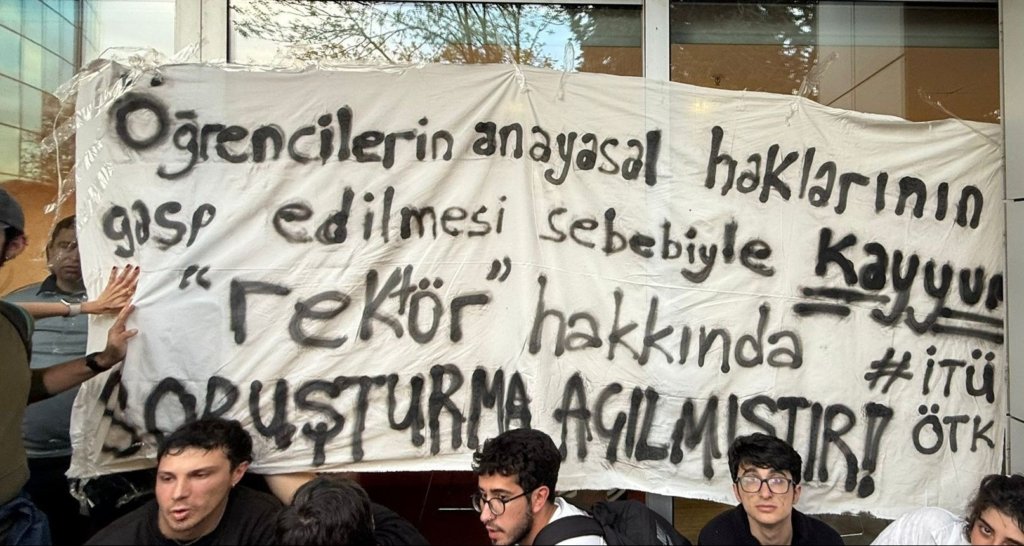 Öğrencilerin anayasal haklarının
gasp edilmesi sebebiyle Kayyum
"rektör" hakkında
SORUŞTURMA AÇILMIŞTIR!
#İTÜ
ÖTK